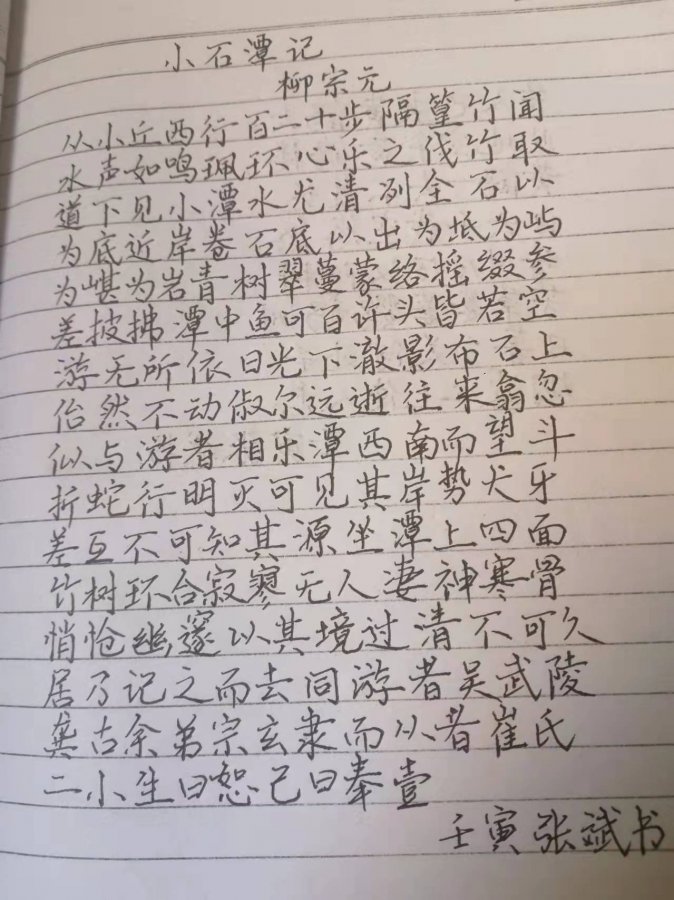 小石潭记
柳宗元
从小丘西行百二十步隔篁竹闻
水声如鸣珮环心乐之伐竹取
道下见小潭水尤清冽全石以
为底近岸卷石底以出为坻为屿
为嵁为岩青树翠蔓蒙络摇缀参
差披拂潭中鱼可百许头皆若空
游无所依日光下澈影布石上
佁然不动俶尔远逝往来翕忽
似与游者相乐潭西南而望斗
折蛇行明灭可见其岸势犬牙
差互不可知其源坐潭上四面
竹树环合寂寥无人凄神寒骨
悄怆幽邃以其境过清不可久
居乃记之而去同游者吴武陵
龚古余弟宗玄隶而从者崔氏
二小生曰恕己曰奉壹
壬寅张斌书